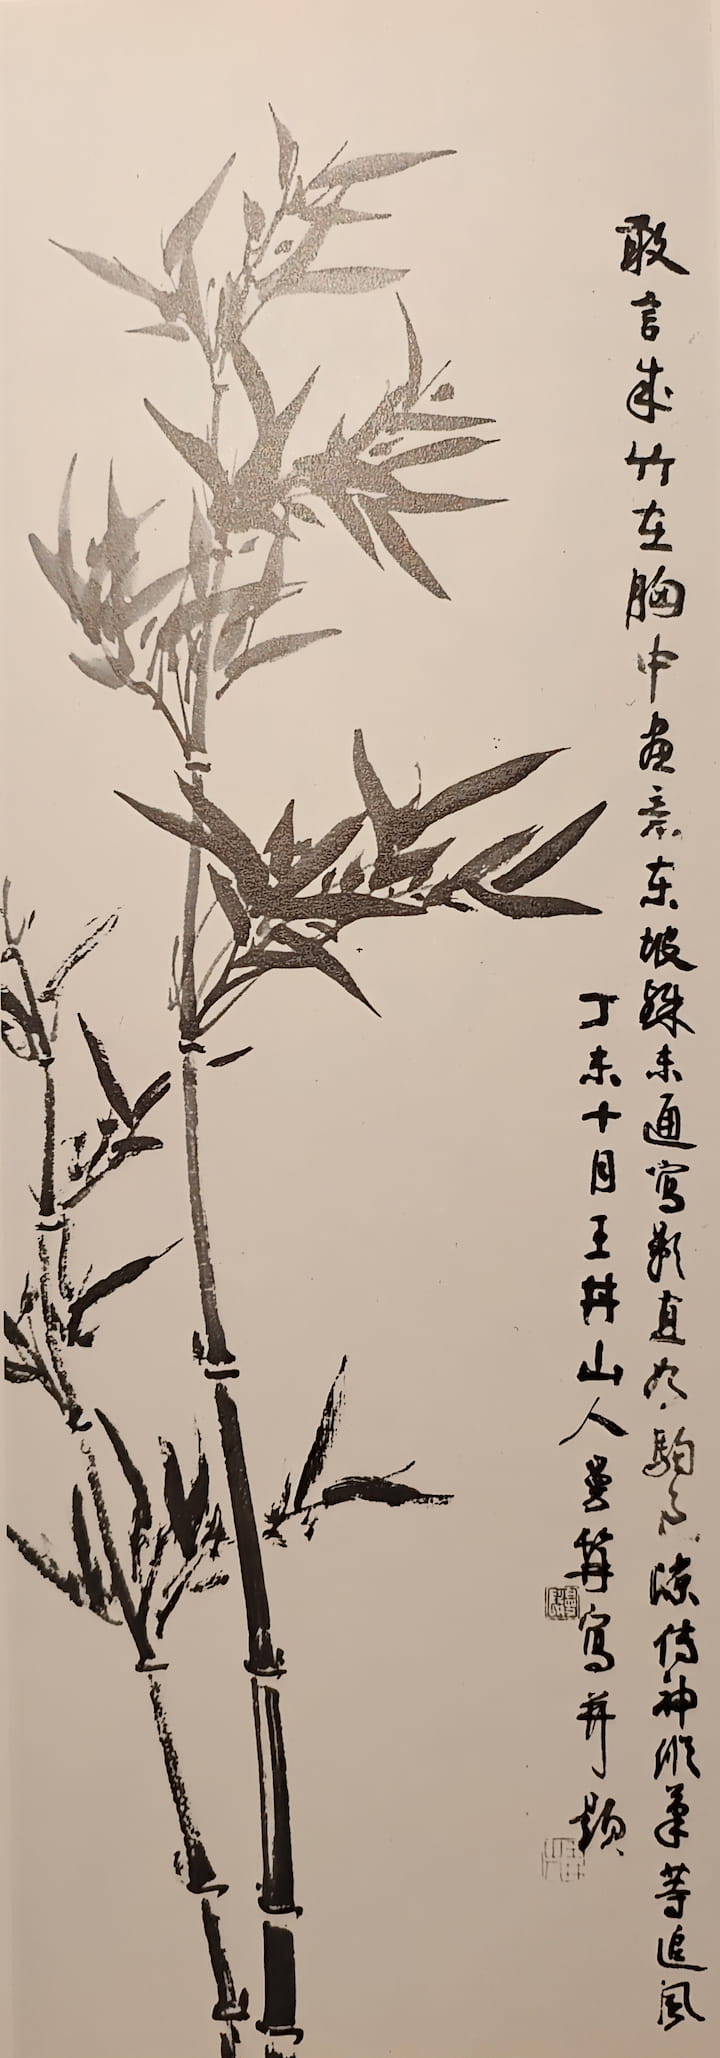 敢言成竹在胸中画意东坡殊未通写影直如驹过隙传神顺笔等追风
丁未十月王丼山人曼箨写并题